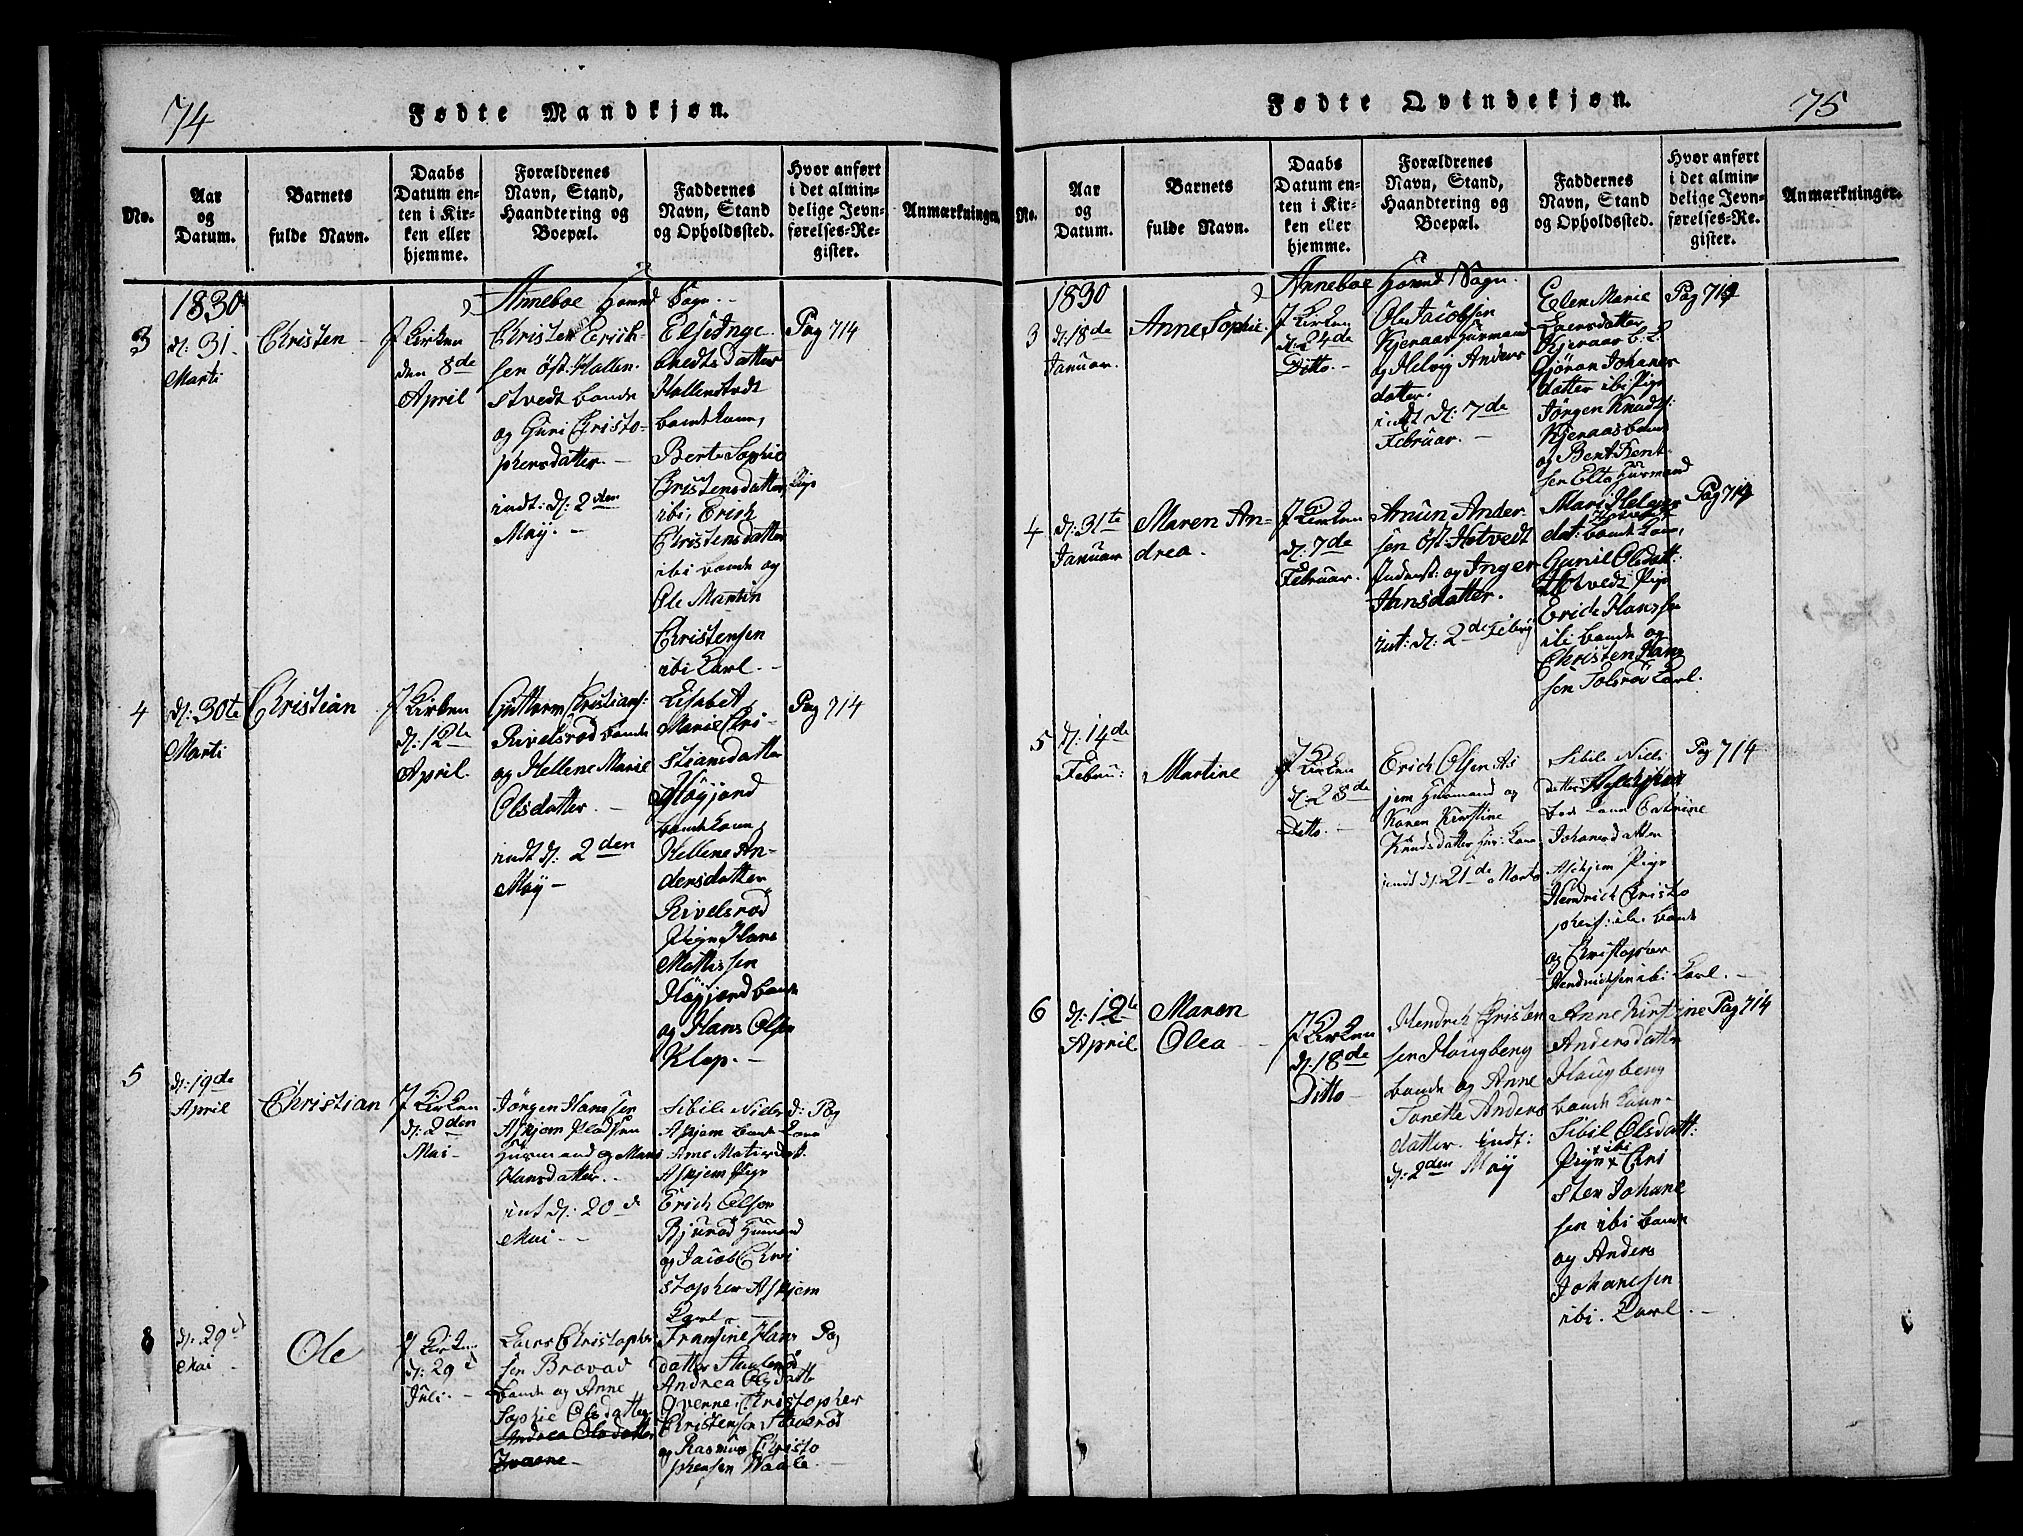 74
Fødte Mandkjøn.
No.
Aar
og
Datum.
Barnets
fulde Navn.
Daabs
Datum en-
ten i Kir-
ken eller
hjemme.
Forældrenes
Navn, Stand,
Haandtering og
Boepæl.
Faddernes
Navn, Stand
og Opholdssted.
Hvor anført
i det almin-
delige Jevn-
førelses-Re-
gister.
Anmærkninger.
1830
Anneboe Sogn.
3
d: 31
Marti
Christen
J Kirken
den 8de
April
Christen Erich-
sen øst: Hallen-
stvedt bonde
og Guri Christo-
phersdatter. -
indt: d: 2den
Maÿ. -
Else Inge-
bredts datter
Hallenstvedt
bondekone,
Berte Sophie
Christensdatter
ibi, Erich
Christensdatter
ibi bonde og
Ole Martin
Christensen
ibi Karl. -
Pige
Pag 714
4
d: 30te
Marti
Christian
J Kirken
d: 12te
April.
Guttorm Christians:
Rivelsrød bonde
og Hellene Marie
Olsdatter. -
indt d: 2den
Maÿ -
Lisabet
Marie Chri-
stiansdatter
Høyjord
bondekone,
Hellene An-
dersdatter
Rivelsrød
Pige, Hans
Mathissen
Høyjord bonde
og Hans Olsen
Klop. -
Pag 714
5
d: 19de
April
Christian
J Kirken
d: 2den
Mai -
Jørgen Hanssen
Askjem Pladsen
Husmand og Mari
Hansdatter. -
int d: 20d
Mai - -
Sibile Niels d:
Askjem bonde Kone
Askjem Pige
Erich Olsen
Bjurød Husmand
og Jacob Chri
stopher Askjem
Karl -
Pag
8
d: 29d
Mai -
Ole
J Kirken
d: 29d
Juli. -
Laers Christopher
sen Brovad
bonde og Anne
Sophie Olsdatter
Andrea Olsdatter
Fransine Hans
datter
Andrea Olsdatte
Qvenne, Christopher
Christensen
og Rasmus Christo
phersen Waale. -
Pag
75
Fødte Qvindekjøn.
No.
Aar
og
Datum.
Barnets
fulde Navn.
Daabs
Datum en-
ten i Kir-
ken eller
hjemme.
Forældrenes
Navn, Stand,
Haandtering og
Boepæl.
Faddernes
Navn, Stand
og Opholdssted.
Hvor anført
i det almin-
delige Jevn-
førelses-Re-
gister.
Anmærkninger.
1830
Anneboe Sogn.
3
d: 18de
Januar.
Anne Sophie.
J Kirken
d: 24de
Ditto. -
Ole Jacobsen
Kjenaas Husmand
og Helvig Anders
datter.
indt d: 7de
Februar. -
Elen Marie
Laersdatter
Kjenaas b: K.
Gjøran Johanes
datter ibi Pige
Jørgen Knuds:
Kjenaas bonde
og Bent Kent-
sen Elta Husmand
Pag 714
4
d: 31te
Januar
Maren An-
drea.
J Kirken
d: 7de
Februar.
Arnun Ander
sen øst: Hotvedt
Inderst: og Inger
Hansdatter.
int: d: 2de
Mari Helges
dat: bonde kone,
Gunil Olsdatt:
Hotvedt Pige
Erich Hanssen
ibi bonde og
Christen Hans
sen Solsrød Karl.
Pag 714
5
d: 14de
Febru:
Martine
J Kirken
d: 28de
Ditto. -
Erich Olsen As
jem Husmand og
Karen Kirstine
Knudsdatter Hus: Kone
indt d: 21de Marts
Sibile Niels
datter
bonde kone Catrine
Johanesdatter
Askjem Pige
Hendrich Christo
phers: ibi bonde
og Christopher
Hendrichsen ibi Karl. -
Pag 714
6
d: 12te
April
Maren
Olea -
J Kirken
d: 18de
Ditto -
Hendrich Christen
sen Haugberg
bonde og Anne
Tonette Anders
datter. indt:
d: 2den Maÿ
Anne Kirstine
Andersdatter
Haugberg
bonde kone -
Sibil Olsdatt:
Pige ibi Chri
sten Johane
sen ibi bonde
og Anders
Johanesen
ibi Karl. -
Pag 714